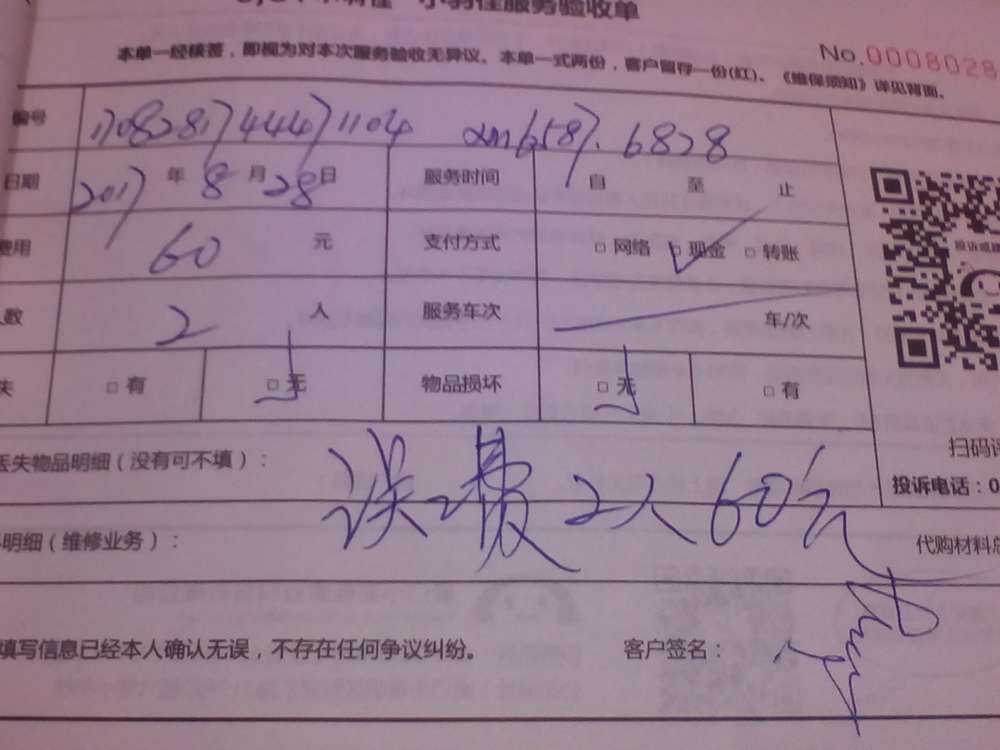 小羽佳服务验收单
No.0008028
本单一经核签，即视为对本次服务验收无异议。本单一式两份，客户留存一份(红)。《维保须知》详见背面。
编号 17082817444471104 6587.6828
日期 2017年8月28日 服务时间 自 至 止
费用 60 元 支付方式 □网络 □现金 □转账
人数 2 人 服务车次 车/次
失 □有 □无 物品损坏 □无 □有
扫码评
丢失物品明细（没有可不填）： 投诉电话：0
误工费2人60元
明细（维修业务）： 代购材料总
填写信息已经本人确认无误，不存在任何争议纠纷。 客户签名：